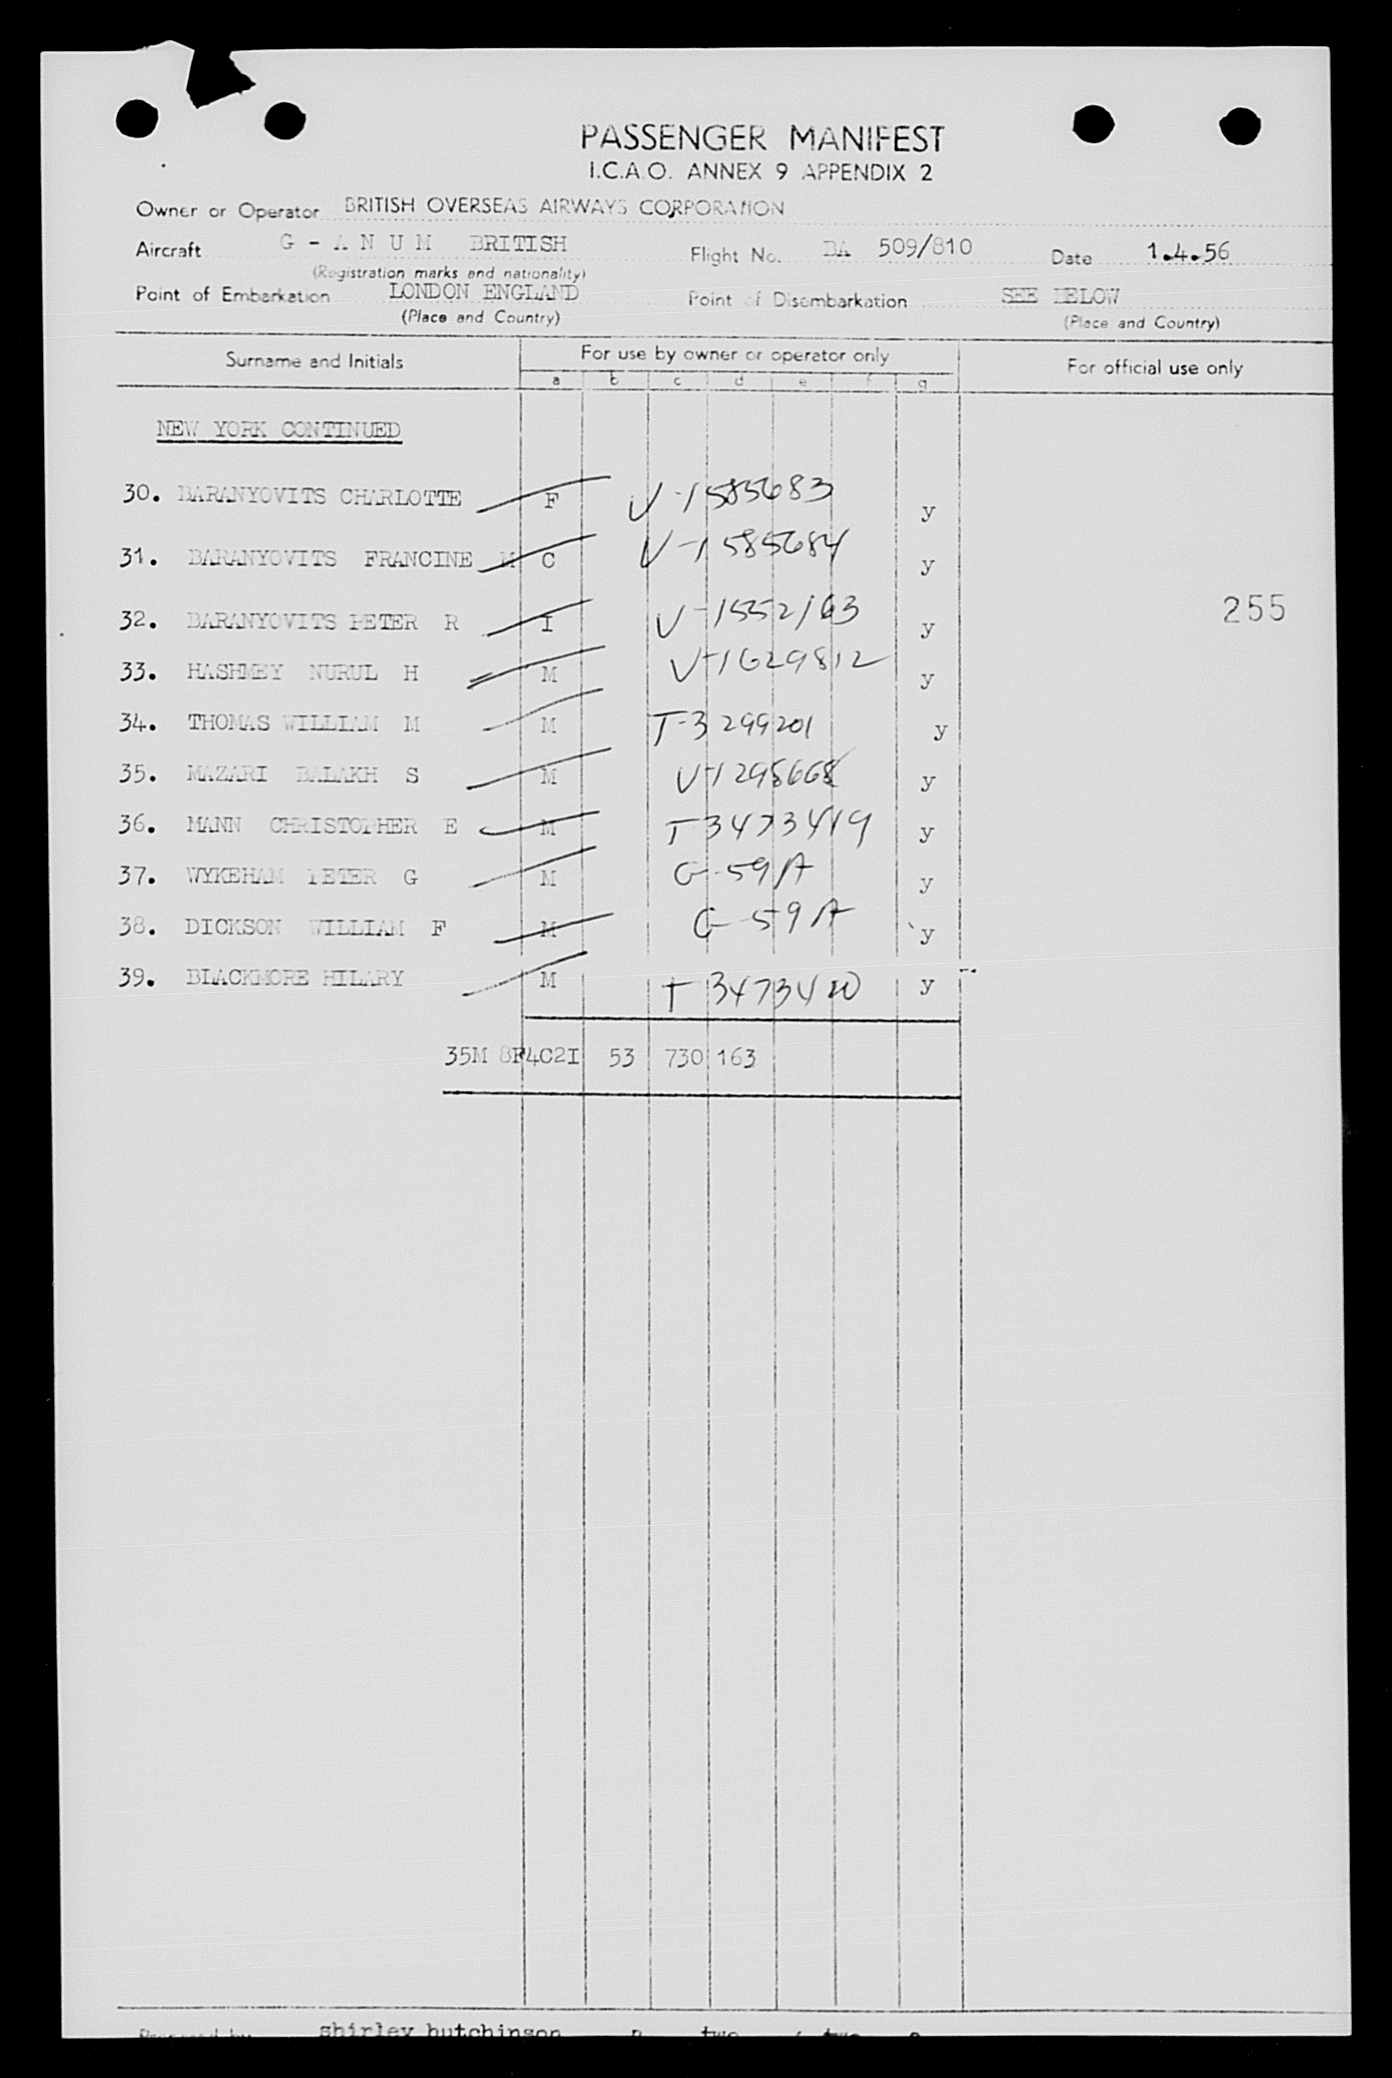 PASSENGER MANIFEST
I.C.A.O. ANNEX 9 APPENDIX 2
Owner or Operator BRITISH OVERSEAS AIRWAYS CORPORATION
Aircraft G - A N U M BRITISH Flight No. BA 509/810 Date 1.4.56
(Registration marks and nationality)
Point of Embarkation LONDON ENGLAND Point of Disembarkation SEE BELOW
(Place and Country) (Place and Country)
Surname and Initials For use by owner or operator only For official use only
a b c d e f g
NEW YORK CONTINUED
30. BARANYOVITS CHARLOTTE F V-1585683 y
31. BARANYOVITS FRANCINE M C V-1585684 y
32. BARANYOVITS PETER R I V-1552163 y
255
33. HASHMEY NURUL H M V-1629812 y
34. THOMAS WILLIAM M M T-3299201 y
35. MAZARI BALAKH S M V-1298668 y
36. MANN CHRISTOPHER E M T-3473419 y
37. WYKEHAM PETER G M G-59A y
38. DICKSON WILLIAM F M G-59A y
39. BLACKMORE HILARY M T 3473420 y
35M 8F4C2I 53 730 163
Prepared by shirley hutchinson two two